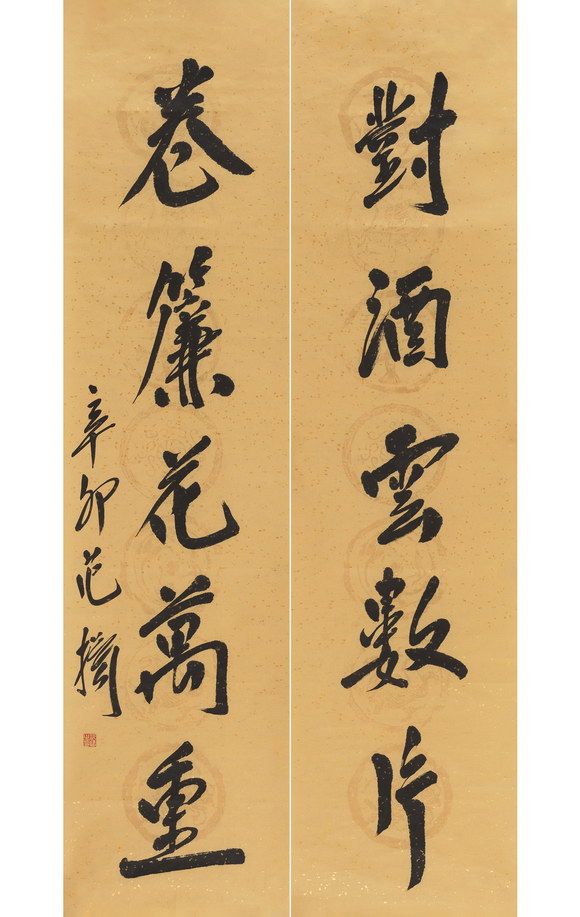 對酒雲數片
卷簾花萬重
辛卯范